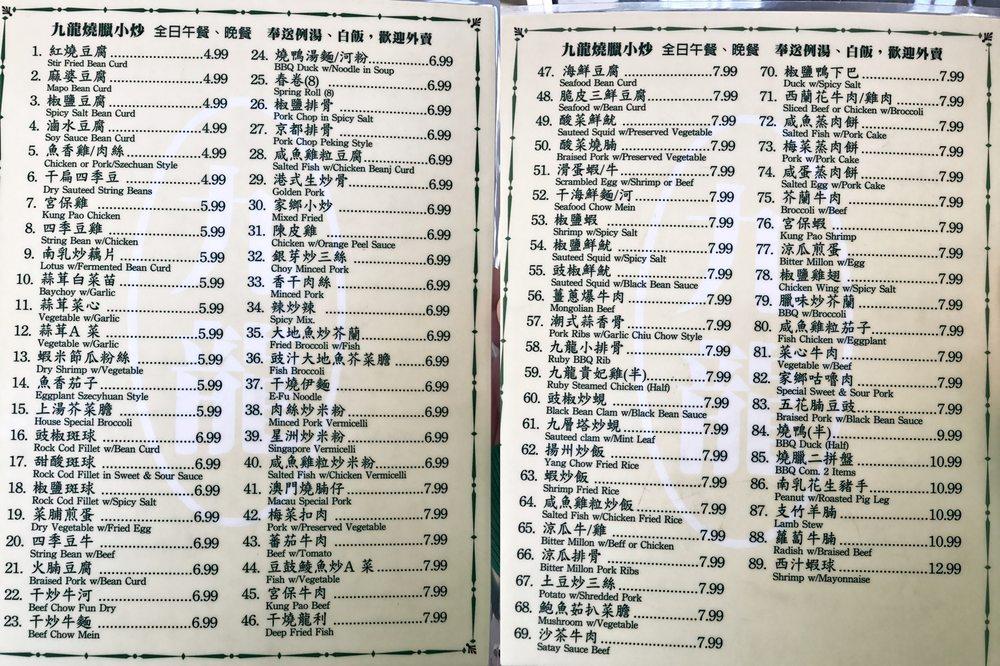 九龍燒臘小炒 全日午餐、晚餐 奉送例湯、白飯，歡迎外賣
1. 紅燒豆腐 4.99
Stir Fried Bean Curd
2. 麻婆豆腐 4.99
Mapo Bean Curd
3. 椒鹽豆腐 4.99
Spicy Salt Bean Curd
4. 滷水豆腐 4.99
Soy Sauce Bean Curd
5. 魚香雞/肉絲 4.99
Chicken or Pork/Szechuan Style
6. 干扁四季豆 4.99
Dry Sauteed String Beans
7. 宮保雞 5.99
Kung Pao Chicken
8. 四季豆雞 5.99
String Bean w/Chicken
9. 南乳炒藕片 5.99
Lotus w/Fermented Bean Curd
10. 蒜茸白菜苗 5.99
Baychoy w/Garlic
11. 蒜茸菜心 5.99
Vegetable w/Garlic
12. 蒜茸A 菜 5.99
Vegetable w/Garlic
13. 蝦米節瓜粉絲 5.99
Dry Shrimp w/Vegetable
14. 魚香茄子 5.99
Eggplant Szecyhuan Style
15. 上湯芥菜膽 5.99
House Special Broccoli
16. 豉椒斑球 6.99
Rock Cod Fillet w/Bean Curd
17. 甜酸斑球 6.99
Rock Cod Fillet in Sweet & Sour Sauce
18. 椒鹽斑球 6.99
Rock Cod Fillet w/Spicy Salt
19. 菜脯煎蛋 6.99
Dry Vegetable w/Fried Egg
20. 四季豆牛 6.99
String Bean w/Beef
21. 火腩豆腐 6.99
Braised Pork w/Bean Curd
22. 干炒牛河 6.99
Beef Chow Fun Dry
23. 干炒牛麵 6.99
Beef Chow Mein
24. 燒鴨湯麵/河粉 6.99
BBQ Duck w/Noodle in Soup
25. 春卷(8) 6.99
Spring Roll (8)
26. 椒鹽排骨 6.99
Pork Chop in Spicy Salt
27. 京都排骨 6.99
Pork Chop Peking Style
28. 咸魚雞粒豆腐 6.99
Salted Fish w/Chicken Beanj Curd
29. 港式生炒骨 6.99
Golden Pork
30. 家鄉小炒 6.99
Mixed Fried
31. 陳皮雞 6.99
Chicken w/Orange Peel Sauce
32. 銀芽炒三絲 6.99
Choy Minced Pork
33. 香干肉絲 6.99
Minced Pork
34. 辣炒辣 6.99
Spicy Mix.
35. 大地魚炒芥蘭 6.99
Fried Broccoli w/Fish
36. 豉汁大地魚芥菜膽 6.99
Fish Broccoli
37. 干燒伊麵 6.99
E-Fu Noodle
38. 肉絲炒米粉 6.99
Minced Pork Vermicelli
39. 星洲炒米粉 6.99
Singapore Vermicelli
40. 咸魚雞粒炒米粉 6.99
Salted Fish w/Chicken Vermicelli
41. 澳門燒腩仔 7.99
Macau Special Pork
42. 梅菜扣肉 7.99
Pork w/Preserved Vegetable
43. 蕃茄牛肉 7.99
Beef w/Tomato
44. 豆鼓鯪魚炒A 菜 7.99
Fish w/Vegetable
45. 宮保牛肉 7.99
Kung Pao Beef
46. 干燒龍利 7.99
Deep Fried Fish
九龍燒臘小炒 全日午餐、晚餐 奉送例湯、白飯，歡迎外賣
47. 海鮮豆腐 7.99
Seafood Bean Curd
48. 脆皮三鮮豆腐 7.99
Seafood w/Bean Curd
49. 酸菜鮮魷 7.99
Sauteed Squid w/Preserved Vegetable
50. 酸菜燒腩 7.99
Braised Pork w/Preserved Vegetable
51. 滑蛋蝦/牛 7.99
Scrambled Egg w/Shrimp or Beef
52. 干海鮮麵/河 7.99
Seafood Chow Mein
53. 椒鹽蝦 7.99
Shrimp w/Spicy Salt
54. 椒鹽鮮魷 7.99
Sauteed Squid w/Spicy Salt
55. 豉椒鮮魷 7.99
Sauteed Squid w/Black Bean Sauce
56. 薑蔥爆牛肉 7.99
Mongolian Beef
57. 潮式蒜香骨 7.99
Pork Ribs w/Garlic Chiu Chow Style
58. 九龍小排骨 7.99
Ruby BBQ Rib
59. 九龍貴妃雞(半) 7.99
Ruby Steamed Chicken (Half)
60. 豉椒炒蜆 7.99
Black Bean Clam w/Black Bean Sauce
61. 九層塔炒蜆 7.99
Sauteed clam w/Mint Leaf
62. 揚州炒飯 7.99
Yang Chow Fried Rice
63. 蝦炒飯 7.99
Shrimp Fried Rice
64. 咸魚雞粒炒飯 7.99
Salted Fish w/Chicken Fried Rice
65. 涼瓜牛/雞 7.99
Bitter Millon w/Beff or Chicken
66. 涼瓜排骨 7.99
Bitter Millon Pork Ribs
67. 土豆炒三絲 7.99
Potato w/Shredded Pork
68. 鮑魚菇扒菜膽 7.99
Mushroom w/Vegetable
69. 沙茶牛肉 7.99
Satay Sauce Beef
70. 椒鹽鴨下巴 7.99
Duck w/Spicy Salt
71. 西蘭花牛肉/雞肉 7.99
Sliced Beef or Chicken w/Broccoli
72. 咸魚蒸肉餅 7.99
Salted Fish w/Pork Cake
73. 梅菜蒸肉餅 7.99
Pork w/Pork Cake
74. 咸蛋蒸肉餅 7.99
Salted Egg w/Pork Cake
75. 芥蘭牛肉 7.99
Broccoli w/Beef
76. 宮保蝦 7.99
Kung Pao Shrimp
77. 涼瓜煎蛋 7.99
Bitter Millon w/Egg
78. 椒鹽雞翅 7.99
Chicken Wing w/Spicy Salt
79. 臘味炒芥蘭 7.99
BBQ w/Broccoli
80. 咸魚雞粒茄子 7.99
Fish Chicken w/Eggplant
81. 菜心牛肉 7.99
Vegetable w/Beef
82. 家鄉咕嚕肉 7.99
Special Sweet & Sour Pork
83. 五花腩豆豉 7.99
Braised Pork w/Black Bean Sauce
84. 燒鴨(半) 9.99
BBQ Duck (Half)
85. 燒臘二拼盤 10.99
BBQ Com. 2 Items
86. 南乳花生豬手 10.99
Peanut w/Roasted Pig Leg
87. 支竹羊腩 10.99
Lamb Stew
88. 蘿蔔牛腩 10.99
Radish w/Braised Beef
89. 西汁蝦球 12.99
Shrimp w/Mayonnaise